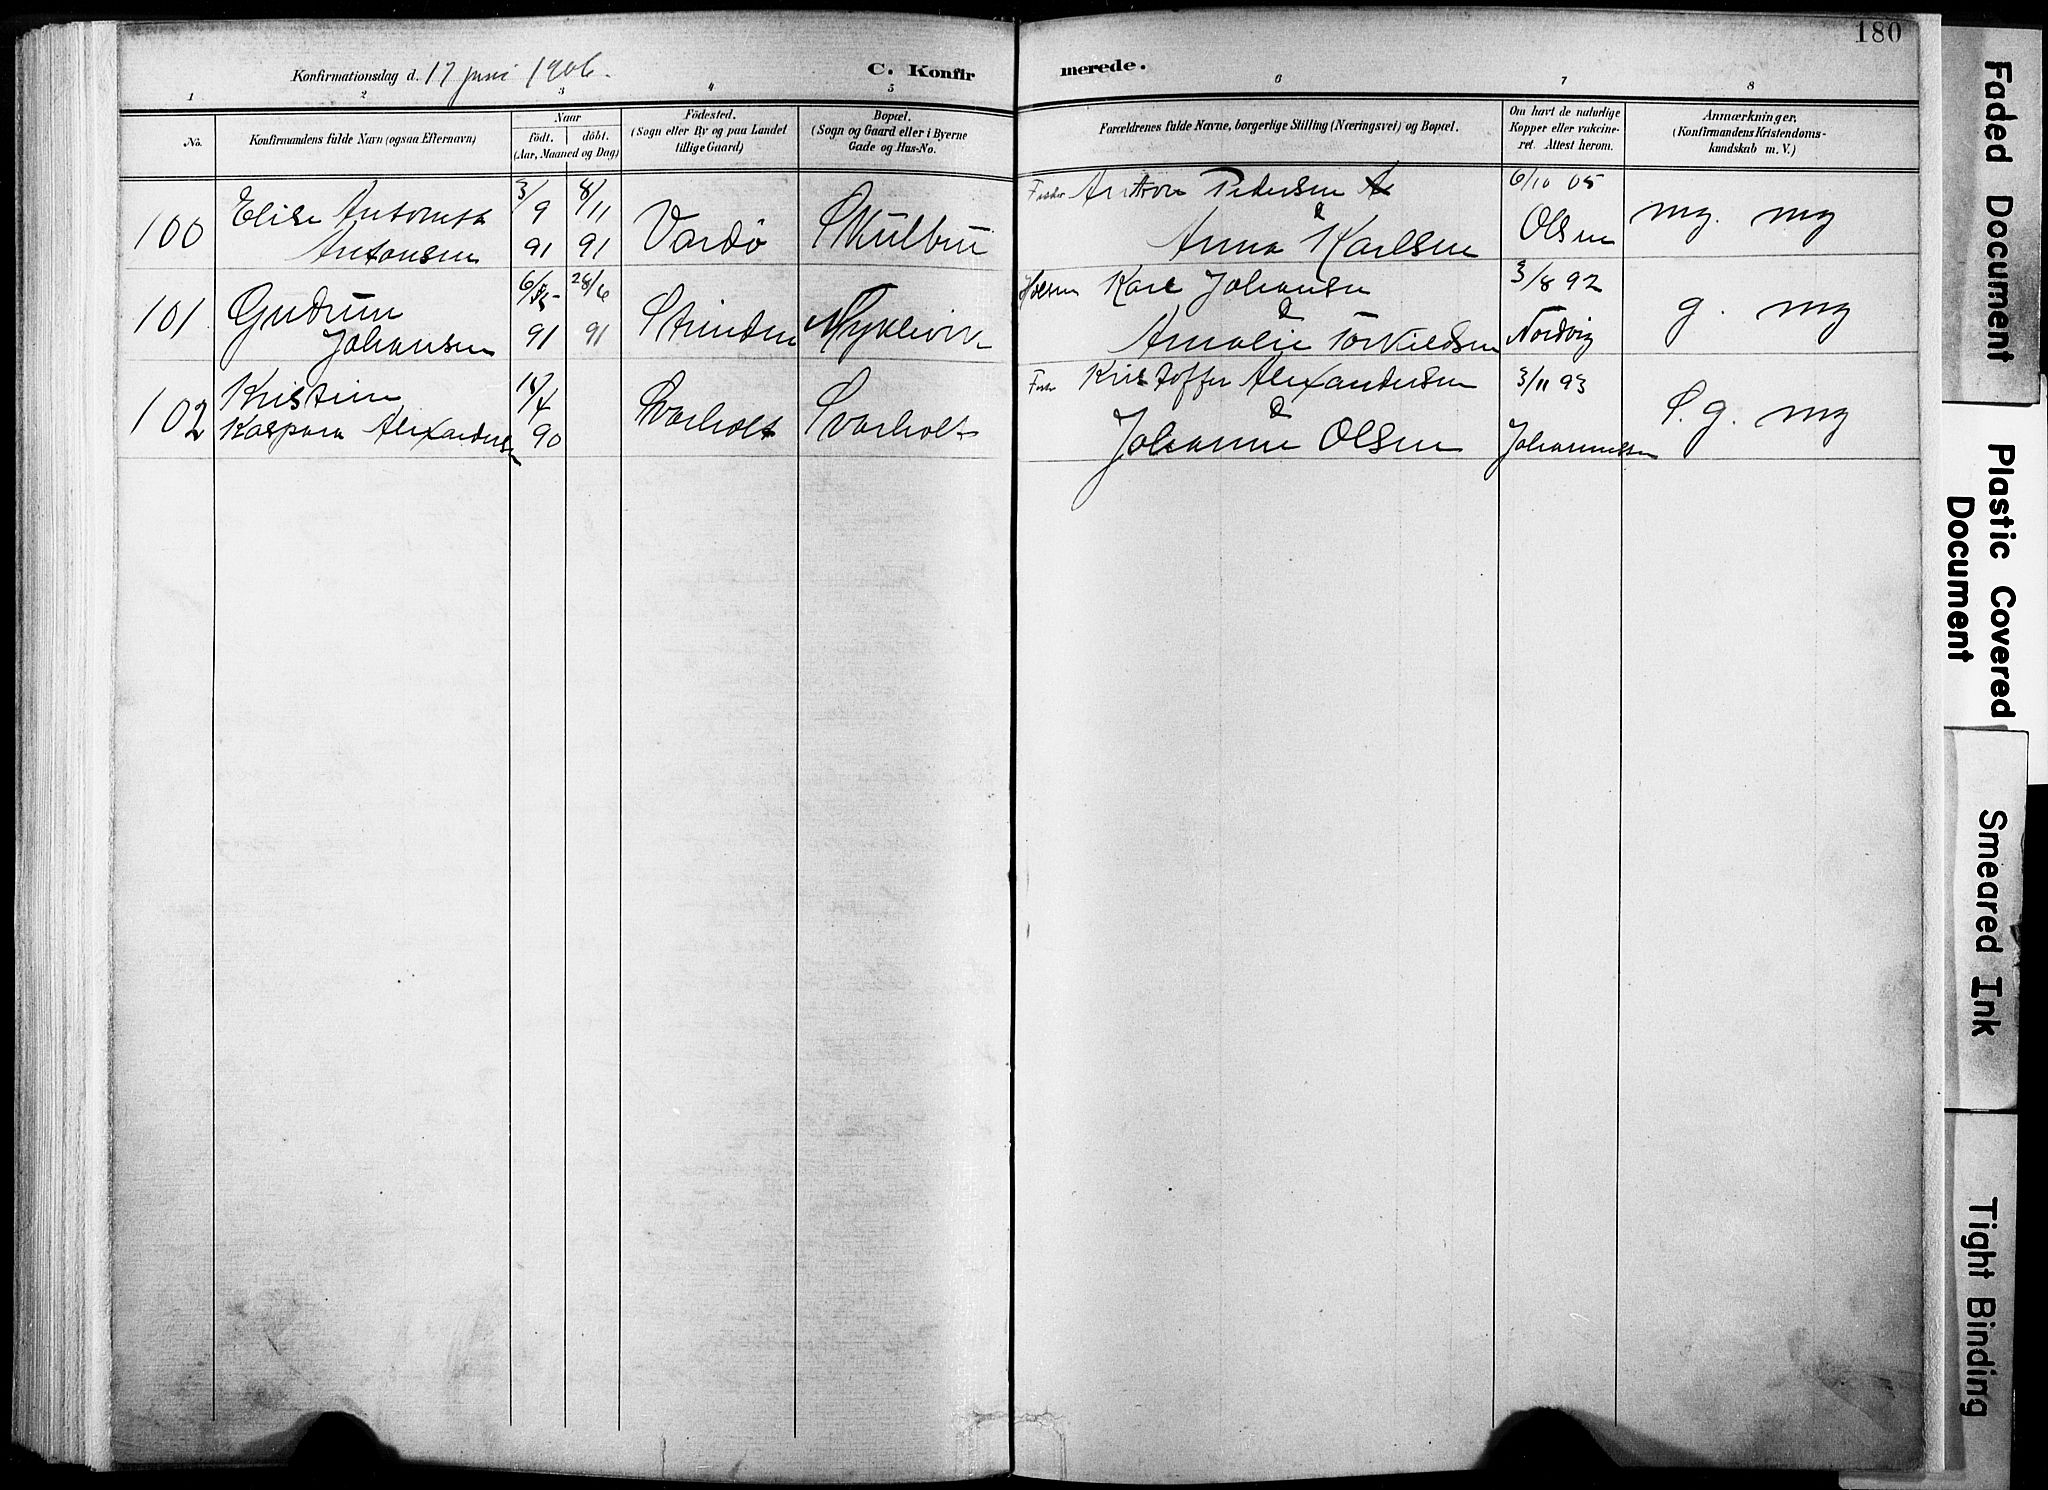 180
Konfirmationsdag d. 17 juni 1906.
C. Konfirmerede.
1 2 3 4 5 6 7 8
No.
Konfirmandens fulde Navn (ogsaa Efternavn)
Naar
födt. döbt.
(Aar, Maaned og Dag)
Födested.
(Sogn eller By og paa Landet
tillige Gaard)
Bopæl.
(Sogn og Gaard eller i Byerne
Gade og Hus-No.
Forældrenes fulde Navne, borgerlige Stilling (Næringsvei) og Bopæl.
Om havt de naturlige
Kopper eller vakcine-
ret. Attest herom.
Anmærkninger,
(Konfirmandens Kristendoms-
kundskab m. V.)
100 Elise
Antonsen
3/9 91
8/11 91
Vardö
Anton Pedersen
&
Anna Karlsen
6/10 05
Olsen
mg. mg
101 Gudrun
Johansen
91
28/6 91
Strinden
Karl Johansen
&
Amalie Torkildsen
3/8 92
Nordvig
g. mg
102 Kristine
Kaspara Alexandersen
90
Svarholt
Svarholt
Kristoffer Alexandersen
&
Johanne Olsen
3/11 93
Johannessen
S. g. mg
Faded Document
Plastic Covered
Document
Smeared Ink
Tight Binding